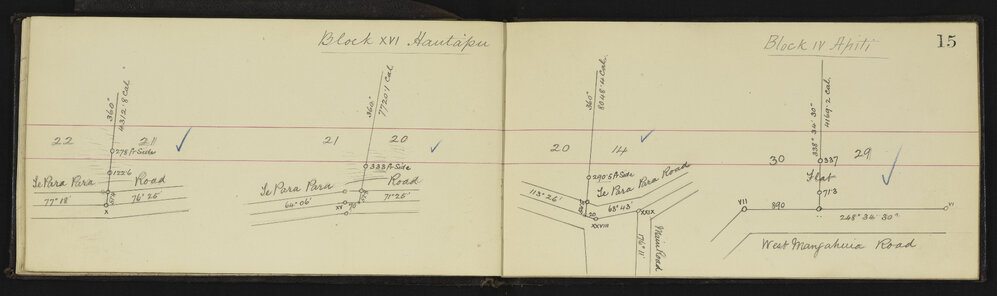 Block XVI Hautapu
Block IV Apiti
15
360°
4312.8 Cal.
22
21
275 A-Side
122.6
Te Para Para Road
77° 18'
76° 25'
X
360°
7720.1 Cal.
21
20
333 A-Side
Te Para Para Road
64° 06'
XV
70
71° 25'
360°
8048.4 Cal.
20
14
290.5 A-Side
Te Para Para Road
113° 26'
63° 43'
20
XXVIII
XXIX
176° 11'
Main Road
338° 34' 30"
4169.2 Cal.
30
29
337
Flat
71.3
VII
890
248° 34' 30"
VI
West Mangahuia Road